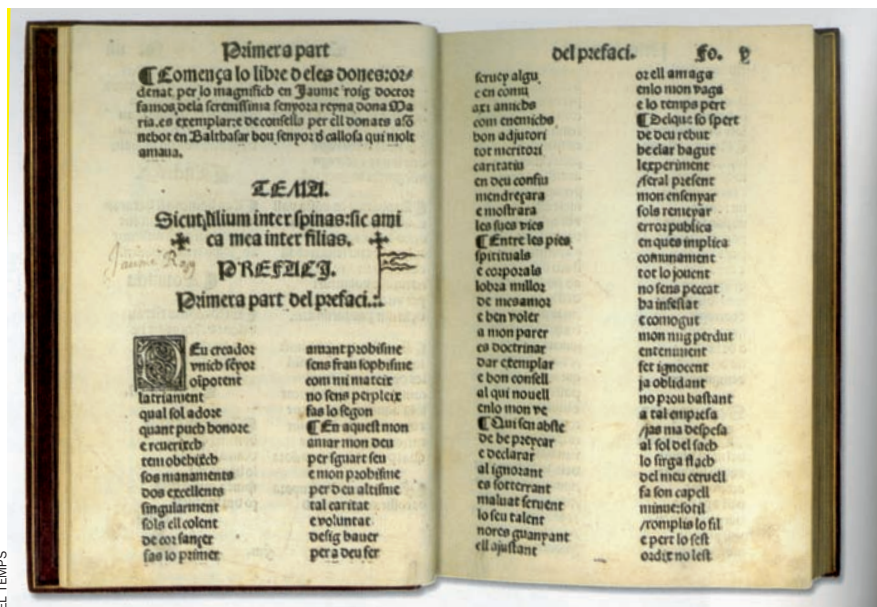 Primera part
¶ Comença lo libre d eles dones:or/
denat per lo magnifich en Jaume roig doctor
famos dela serenissima senyora reyna dona Ma
ria.es exemplar:e de consells per ell donats a sõ
nebot en Balthasar bou senyor d callosa qui molt
amaua.
TEMA.
Sicut lilium inter spinas:sic ami
ca mea inter filias.
Jaume Roig
PREFACI.
Primera part del prefaci.
DEu creador
vnich sẽyor
oĩpotent
latriament
qual sol adore
quant puch honore
e reuerixch
tem obehixch
sos manaments
dos excellents
singularment
sols ell colent
de cor sançer
fas lo primer
amant prohisme
sens frau sophisme
com mi mateix
no sens perpleix
fas lo segon
¶ En aquest mon
amar mon deu
per sguart seu
e mon prohisme
per deu altisme
tal caritat
e voluntat
desig hauer
per a deu fer
del prefaci. Fo. v
seruey algu
e en comu
axi amichs
com enemichs
bon adjutori
tot meritori
caritatiu
en deu confiu
mendreçara
e mostrara
les sues vies
¶ Entre les pies
spirituals
e corporals
lobra millor
de mes amor
e ben voler
a mon parer
es doctrinar
dar exemplar
e bon consell
al qui nouell
enlo mon ve
¶ Qui sen abste
de be preycar
e declarar
al ignorant
es soterrant
maluat seruent
lo seu talent
nores guanyant
ell ajustant
or ell amaga
enlo mon vaga
e lo temps pert
¶ Del que so spert
de deu rebut
be clar hagut
lexperiment
/seral present
mon ensenyar
sols remeyar
error publica
en ques implica
comunament
tot lo jouent
no sens peccat
ha infestat
e comogut
mon nug perdut
enteniment
fet ignocent
ja oblidant
no prou bastant
a tal empresa
/jas ma despesa
al sol del sach
lo sirga flach
del meu ceruell
fa son capell
minue:sotil
/romplis lo fil
e pert lo sest
ordir no lest
EL TEMPS